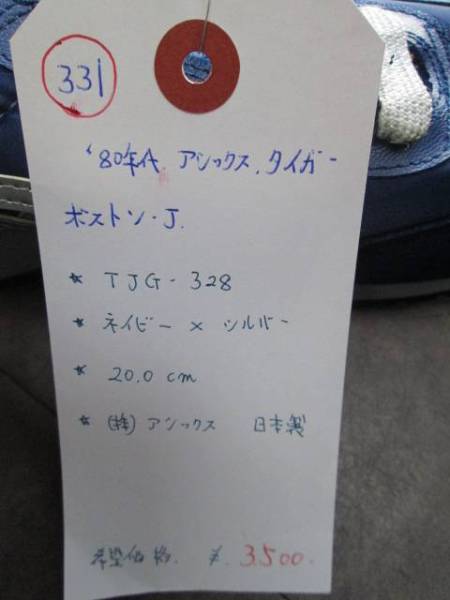 331
'80年代.アシックス.タイガー
ボストン・J.
* TJG-328
* ネイビー × シルバー
* 20.0 cm
* (株)アシックス 日本製
希望価格. ¥.3500.